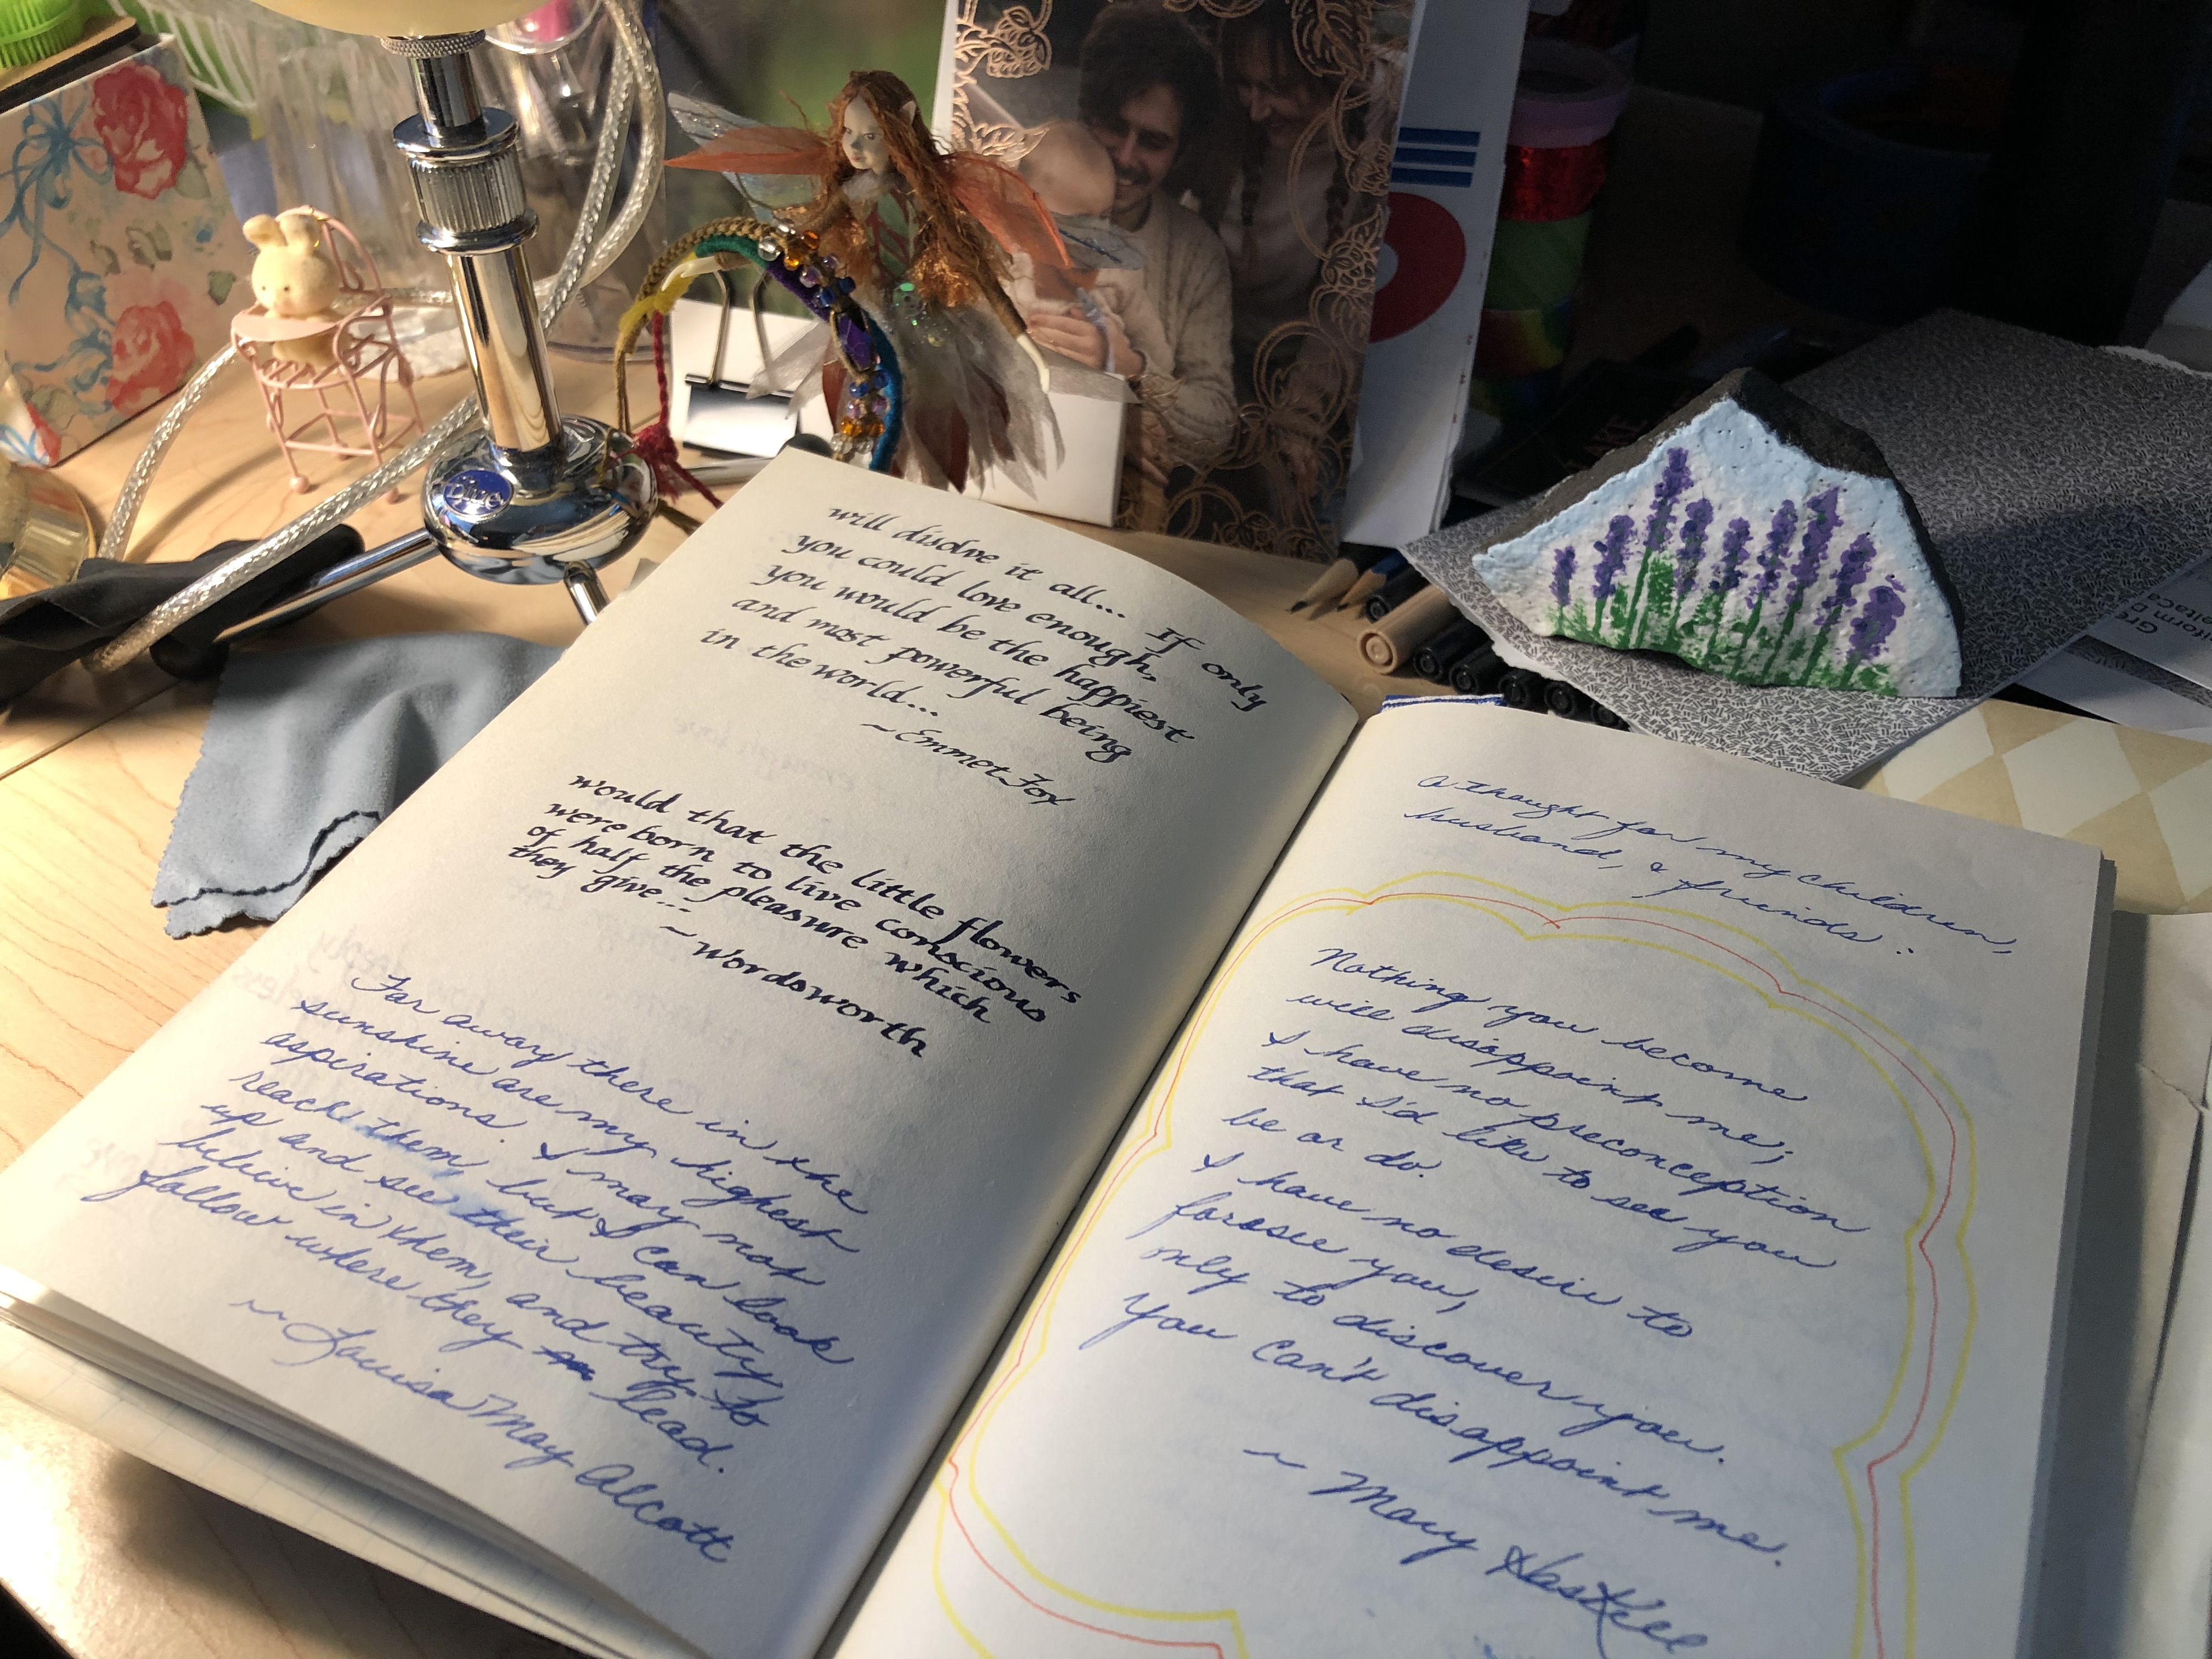 will disolve it all... If only
you could love enough,
you would be the happiest
and most powerful being
in the world...
~Emmet Fox
would that the little flowers
were born to live conscious
of half the pleasure which
they give...
~Wordsworth
Far away there in the
sunshine are my highest
aspirations. I may not
reach them, but I can look
up and see their beauty,
believe in them, and try to
follow where they lead.
~Louisa May Alcott
a thought for my children,
husband, & friends:
Nothing you become
will disappoint me;
I have no preconception
that I'd like to see you
be or do.
I have no desire to
foresee you,
only to discover you.
You can't disappoint me.
~Mary Haskell
Blue